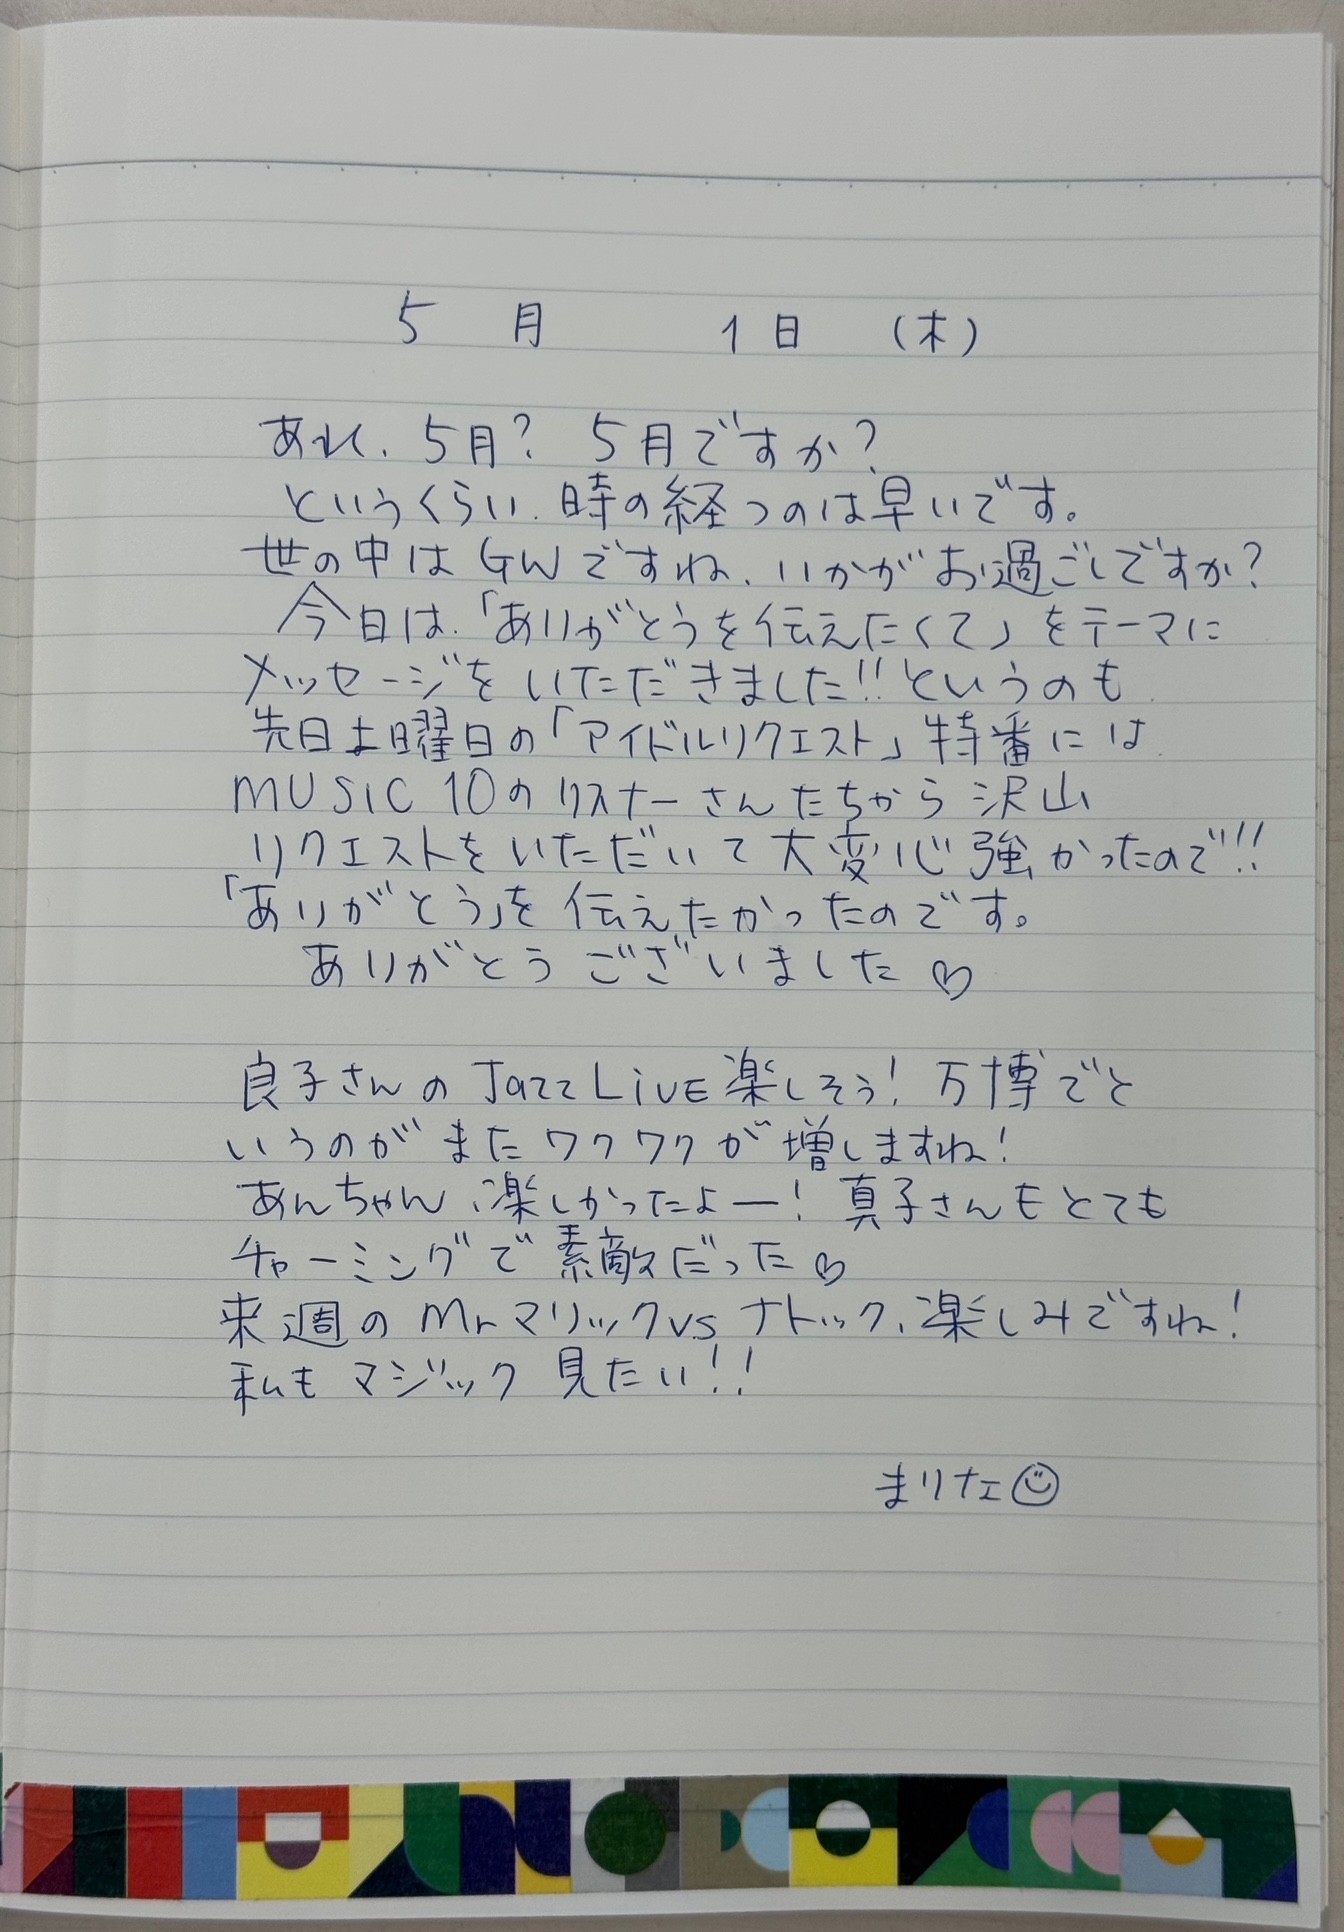 5月 1日 (木)
あれ、5月? 5月ですか?
というくらい、時の経つのは早いです。
世の中はGWですね、いかがお過ごしですか?
今日は、「ありがとうを伝えたくて」をテーマに
メッセージをいただきました!!というのも
先日土曜日の「アイドルリクエスト」特番には
MUSIC 10のリスナーさんたちから沢山
リクエストをいただいて大変心強かったので!!
「ありがとう」を伝えたかったのです。
ありがとうございました♡
良子さんのJazz LIVE楽しそう! 万博でと
いうのがまたワクワクが増しますね!
あんちゃん、楽しかったよー! 真子さんもとても
チャーミングで素敵だった♡
来週のMrマリックvsナトック、楽しみですね!
私もマジック見たい!!
まりなェ☺